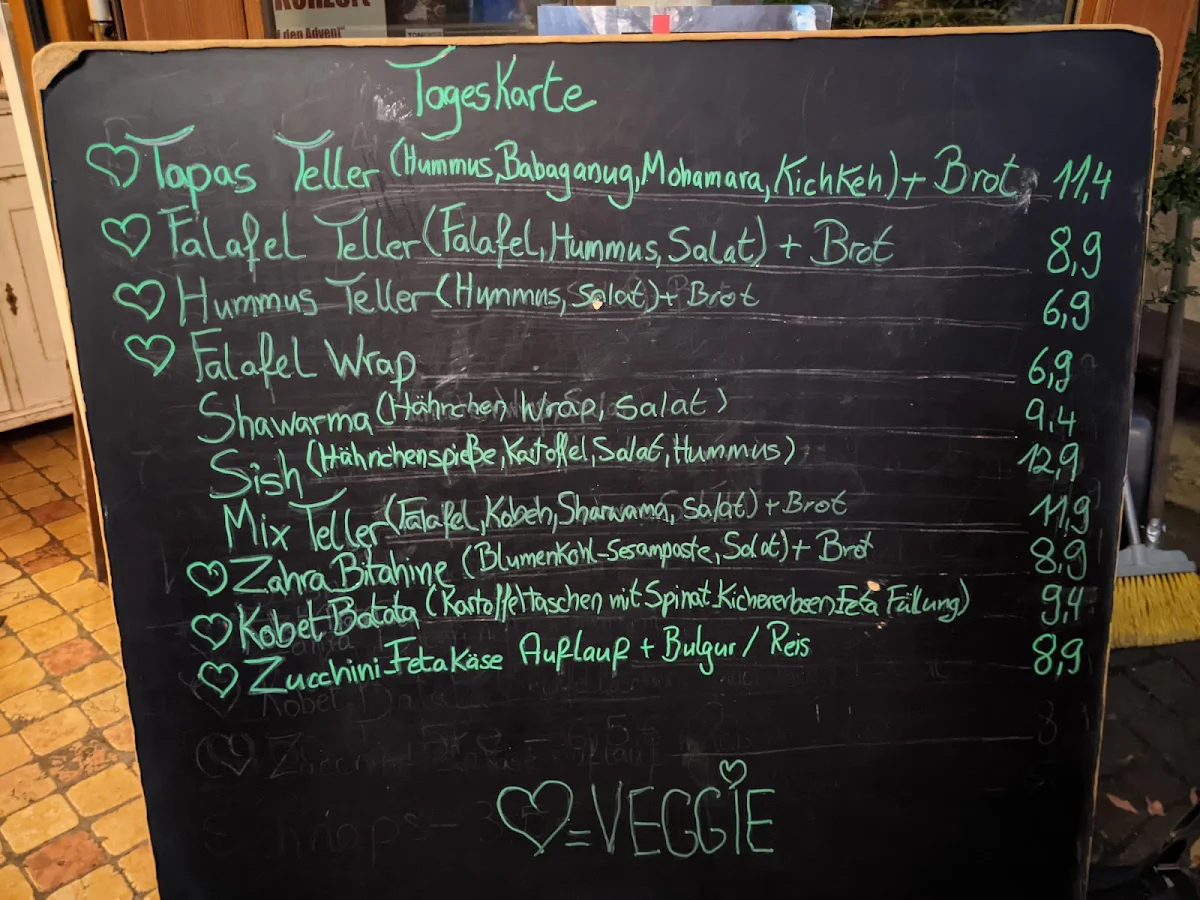 KONZERT
den Advent"
TagesKarte
Tapas Teller (Hummus, Babaganug, Mohamara, KichKeh) + Brot 11,4
Falafel Teller (Falafel, Hummus, Salat) + Brot 8,9
Hummus Teller (Hummus, Salat) + Brot 6,9
Falafel Wrap 6,9
Shawarma (Hähnchen Wrap, Salat) 9,4
Sish (Hähnchenspieße, Kartoffel, Salat, Hummus) 12,9
Mix Teller (Falafel, Kobeh, Sharwama, Salat) + Brot 11,9
Zahra Bitahine (Blumenkohl-Sesampaste, Salat) + Brot 8,9
Kobet Batata (Kartoffeltaschen mit Spinat_Kichererbsen_Feta Füllung) 9,4
Zucchini_FetaKäse Auflauf + Bulgur / Reis 8,9
= VEGGIE